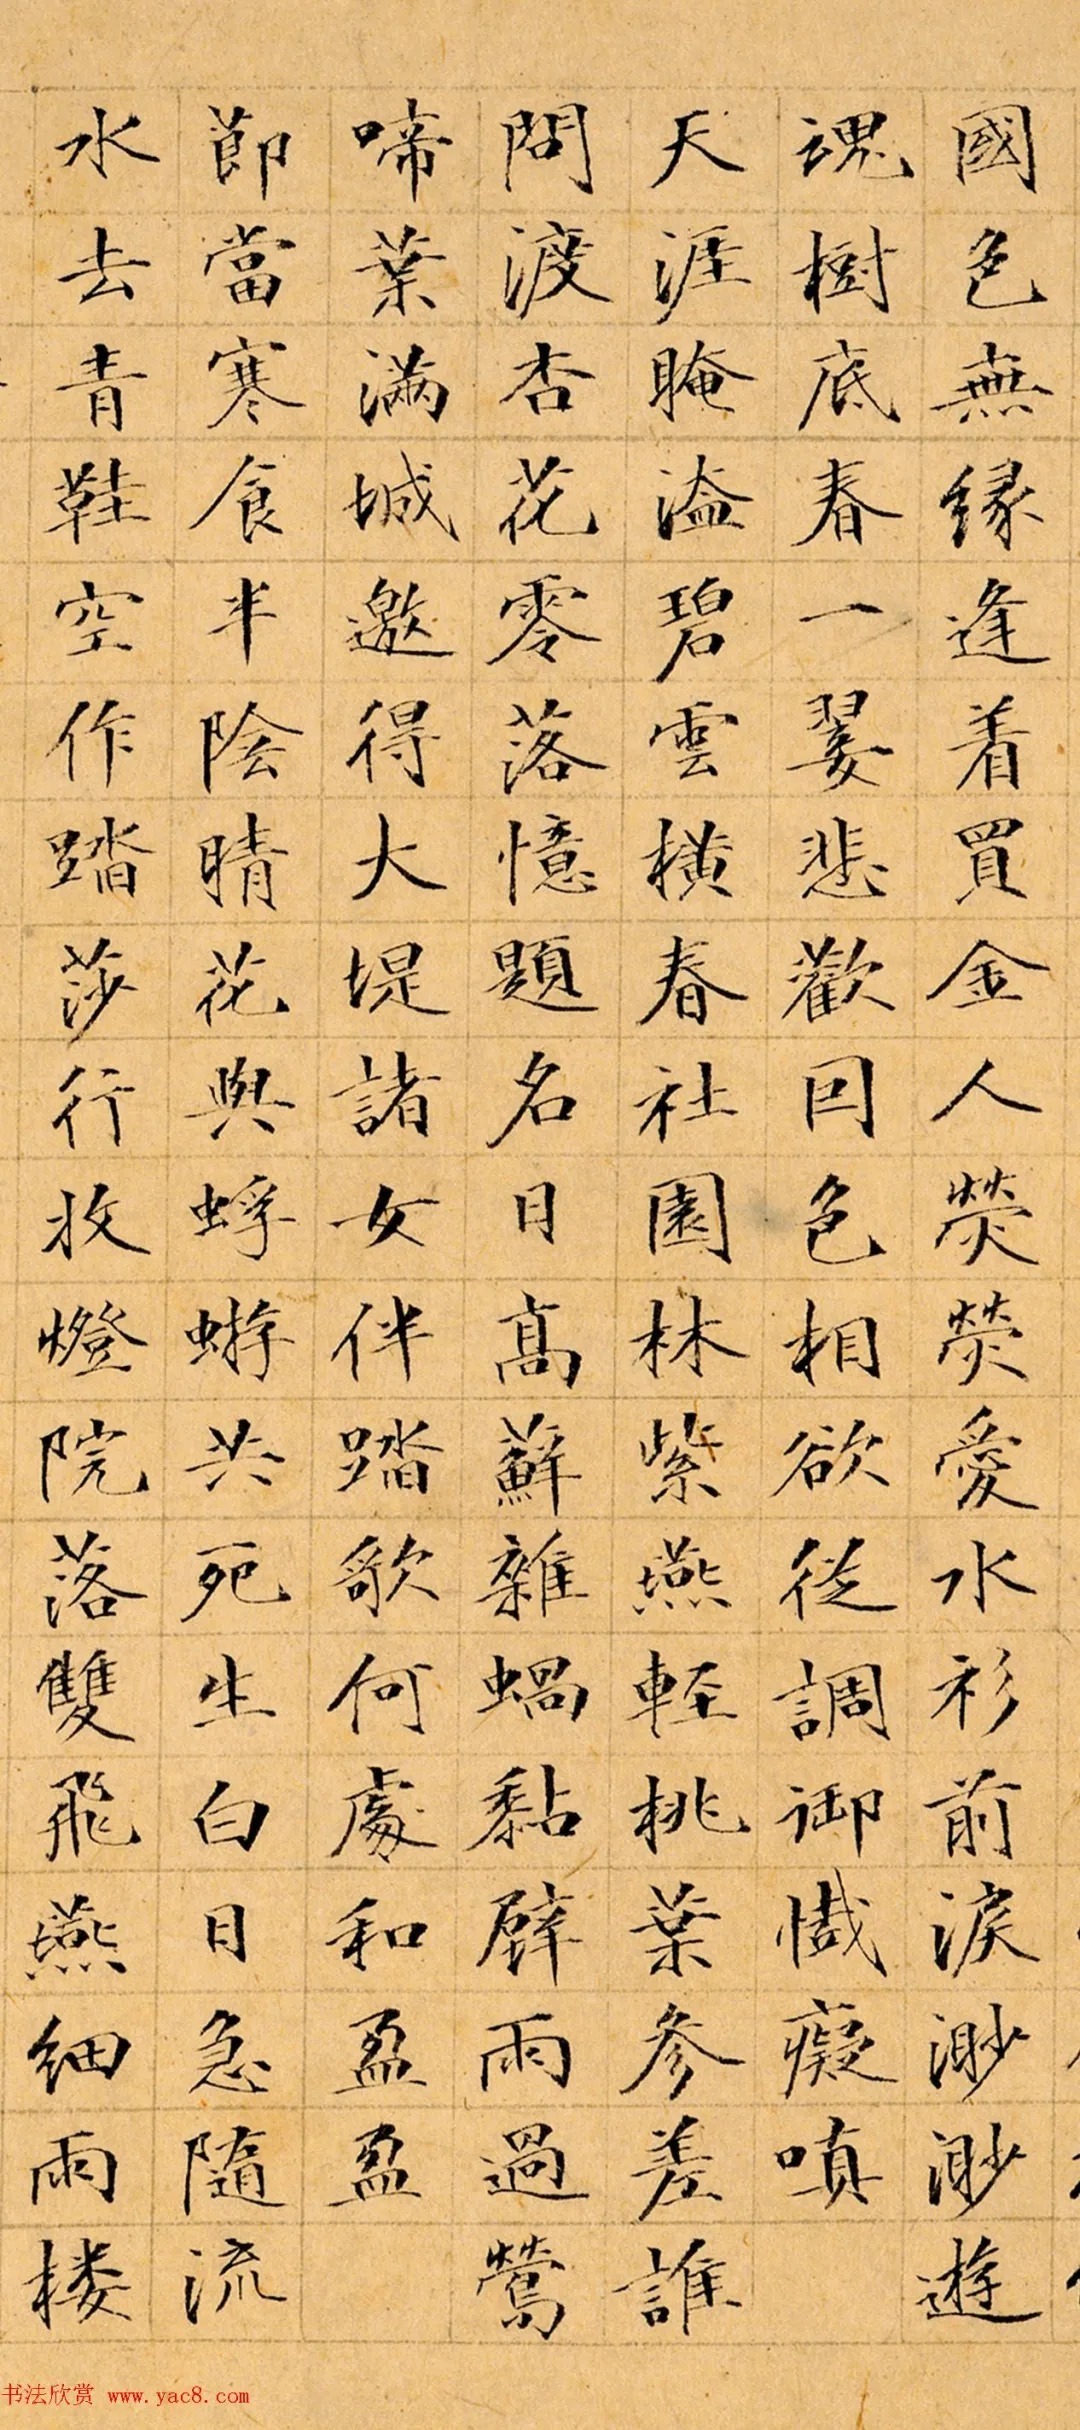 國色無緣逢着買金人熒熒愛水衫前淚渺渺遊
魂樹底春一翣悲歡囙色相欲從調御懺癡嗔
天涯晻溘碧雲橫春社園林紫燕輕桃葉參差誰
問渡杏花零落憶題名日高蘚雜蝸黏壁雨過鶯
啼葉滿城邀得大堤諸女伴踏歌何處和盈盈
節當寒食半陰晴花與蜉蝣共死生白日急隨流
水去青鞋空作踏莎行收燈院落雙飛燕細雨楼
书法欣赏 www.yac8.com